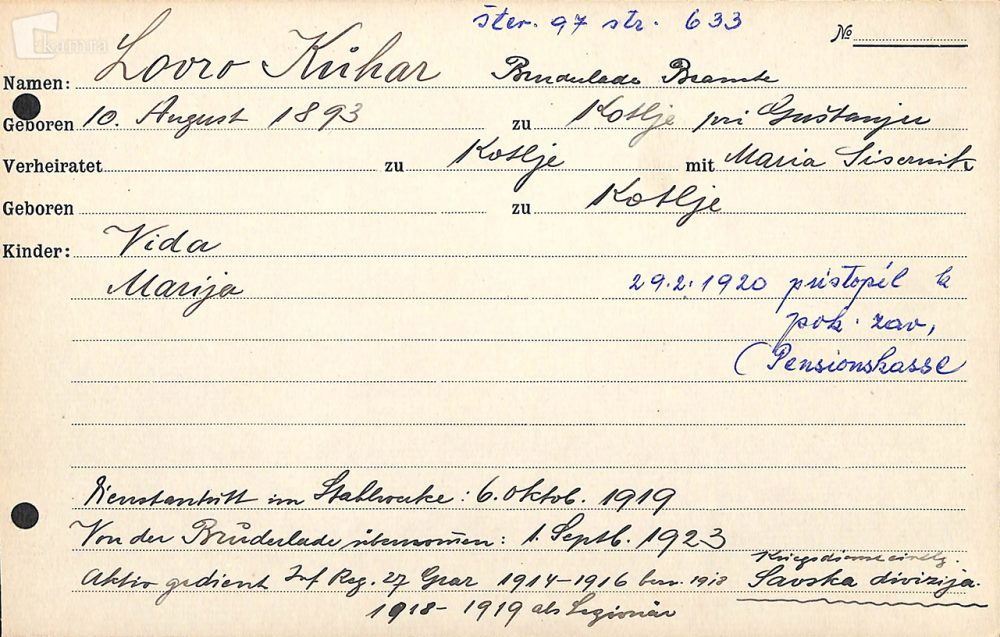 kamra
šter. 97 str. 633
№
Namen: Lovro Kuhar Bruderlade Beamte
Geboren 10. August 1893 zu Kotlje pri Guštanju
Verheiratet zu Kotlje mit Maria Sisernik
Geboren zu Kotlje
Kinder: Vida
Marija
29.2.1920 pristopil k
pok. zav,
(Pensionskasse
Dienstantritt im Stahlwerke: 6. Oktob. 1919
Von der Bruderlade übernommen: 1. Septb. 1923
Aktiv gedient Inf Reg. 27 Graz 1914–1916 1918 Savska divizija.
1918–1919 als Legionär